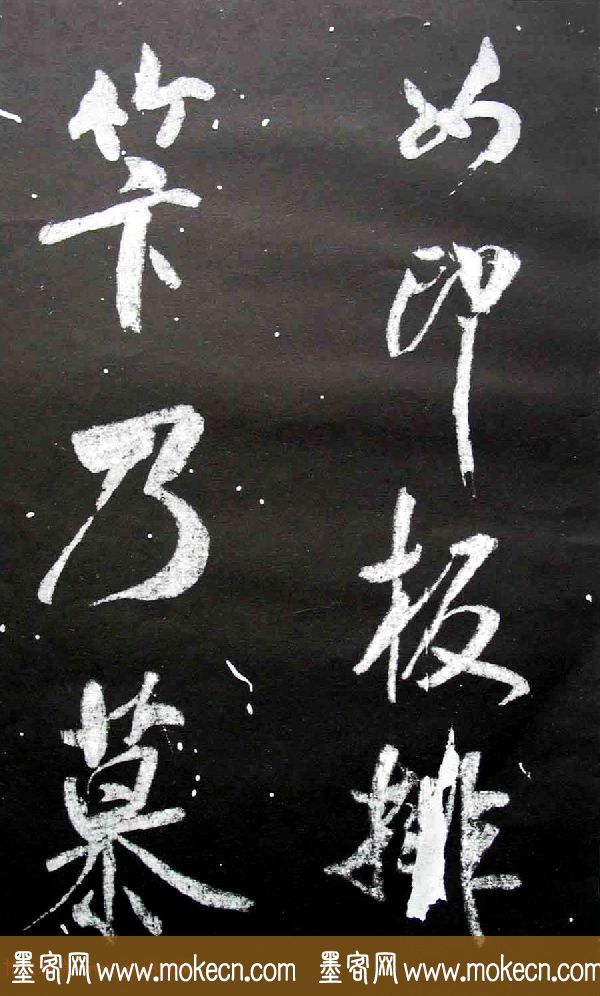 如印板排
笇乃慕
墨客网 www.mokecn.com 墨客网 www.mokecn.com